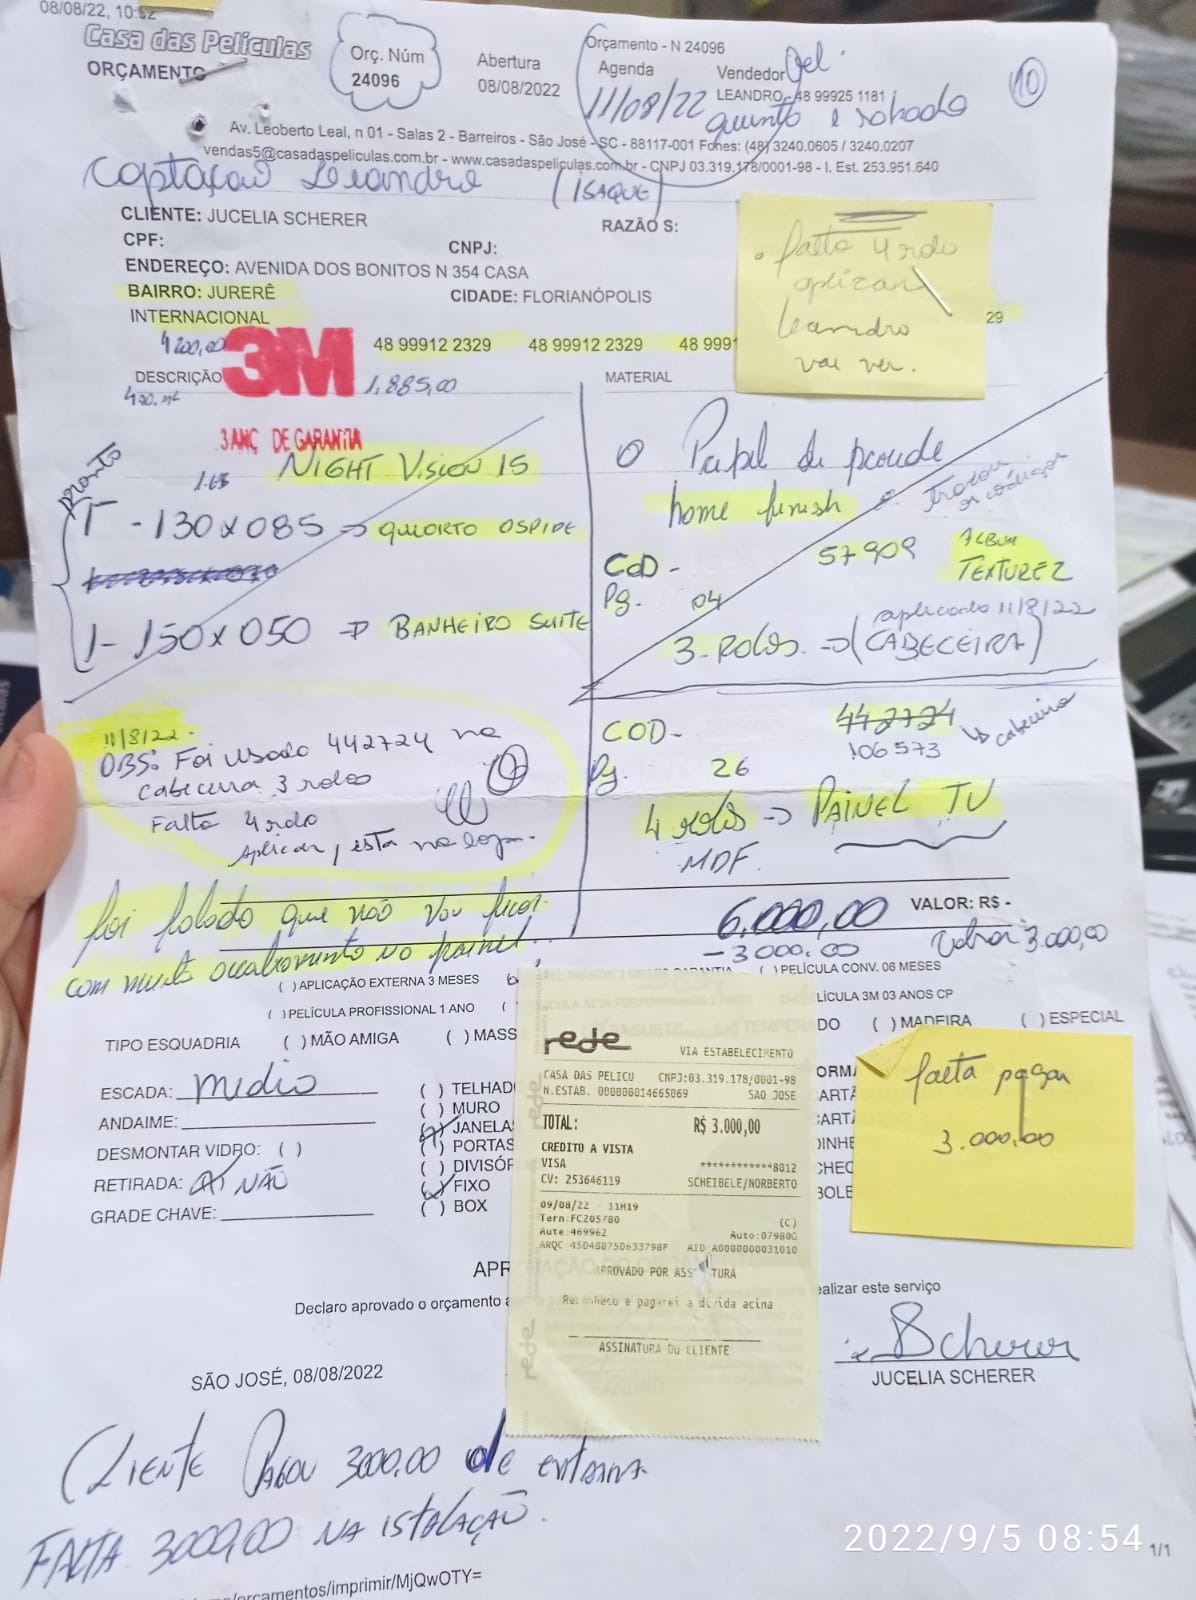 08/08/22, 10:52
Casa das Películas
ORÇAMENTO
Orç. Núm
24096
Abertura
08/08/2022
Orçamento - N 24096
Agenda
11/08/22
Vendedor
LEANDRO - 48 99925 1181
10
Av. Leoberto Leal, n 01 - Salas 2 - Barreiros - São José - SC - 88117-001 Fones: (48) 3240.0605 / 3240.0207
vendas5@casadaspeliculas.com.br - www.casadaspeliculas.com.br - CNPJ 03.319.178/0001-98 - I. Est. 253.951.640
Captação Leandro (ISAQUE)
CLIENTE: JUCELIA SCHERER
RAZÃO S:
CPF:
CNPJ:
ENDEREÇO: AVENIDA DOS BONITOS N 354 CASA
BAIRRO: JURERÊ
INTERNACIONAL
CIDADE: FLORIANÓPOLIS
48 99912 2329 48 99912 2329 48 991 29
falta 4 rolo
aplicar
Leandro
vai ver.
4200,00
3M
1.885,00
DESCRIÇÃO
MATERIAL
3 ANO DE GARANTIA
NIGHT VISION 15
pronto
1 - 130 x 085 → QUARTO OSPIDE
1 - 150 x 050 → BANHEIRO SUITE
Papel de parede
home finish
trocou os códigos
COD - 57909 ALBUM
TEXTUREZ
Pg. 04
aplicado 11/8/22
3 - ROLOS → (CABECEIRA)
11/8/22.
OBS: Foi usado 442724 na
cabeceira 3 rolos
Falta 4 rolo
aplicar, esta na loja.
COD - 442724
106573 → cabeceira
Pg. 26
4 rolos → PAINEL TV
MDF.
foi falado que não vou ficar
com muito acabamento no painel.
6.000,00 VALOR: R$ -
- 3000.00
3.000,00
( ) APLICAÇÃO EXTERNA 3 MESES
( ) PELÍCULA CONV. 06 MESES
( ) PELÍCULA PROFISSIONAL 1 ANO
LÍCULA 3M 03 ANOS CP
TIPO ESQUADRIA ( ) MÃO AMIGA ( ) MASS
DO ( ) MADEIRA ( ) ESPECIAL
ESCADA: médio
ANDAIME:
DESMONTAR VIDRO: ( )
RETIRADA: NÃO
GRADE CHAVE:
( ) TELHAD
( ) MURO
JANELAS
PORTAS
( ) DIVISÓR
FIXO
( ) BOX
ORMA
CARTÃ
CARTÃ
DINHE
CHEC
BOLE
falta pagar
3.000,00
rede
VIA ESTABELECIMENTO
CASA DAS PELICU CNPJ:03.319.178/0001-98
N.ESTAB. 000000014665069 SAO JOSE
TOTAL: R$ 3.000,00
CREDITO A VISTA
VISA ************8012
CV: 253646119 SCHEIBELE/NORBERTO
09/08/22 - 11H19
Term:FC205780 (C)
Aute:469962 Auto:07980G
ARQC 45D48875D633798F AID A0000000031010
APROVADO POR ASSINATURA
Reconheco e pagarei a divida acima
ASSINATURA DO CLIENTE
APR
Declaro aprovado o orçamento a
ealizar este serviço
Scherer
JUCELIA SCHERER
SÃO JOSÉ, 08/08/2022
CLIENTE PAGOU 3000,00 de entrada
FALTA 3000,00 NA ISTALAÇÃO.
/orcamentos/imprimir/MjQwOTY=
1/1
2022/9/5 08:54